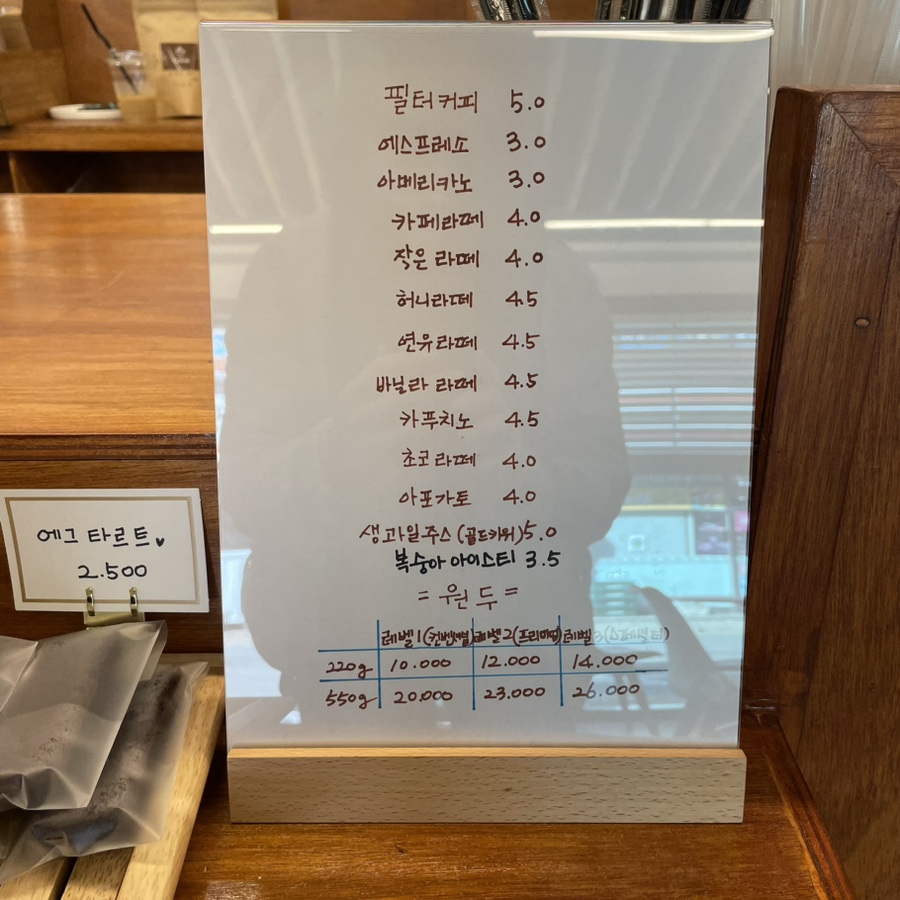 필터커피 5.0
에스프레소 3.0
아메리카노 3.0
카페라떼 4.0
작은 라떼 4.0
허니라떼 4.5
연유라떼 4.5
바닐라 라떼 4.5
카푸치노 4.5
초코라떼 4.0
아포가토 4.0
생과일주스 (골드키위) 5.0
복숭아 아이스티 3.5
= 원두 =
레벨1(컨벤셔널) 레벨2(프리미엄) 레벨3(스페셜티)
220g 10.000 12.000 14.000
550g 20.000 23.000 26.000
에그타르트♥
2.500